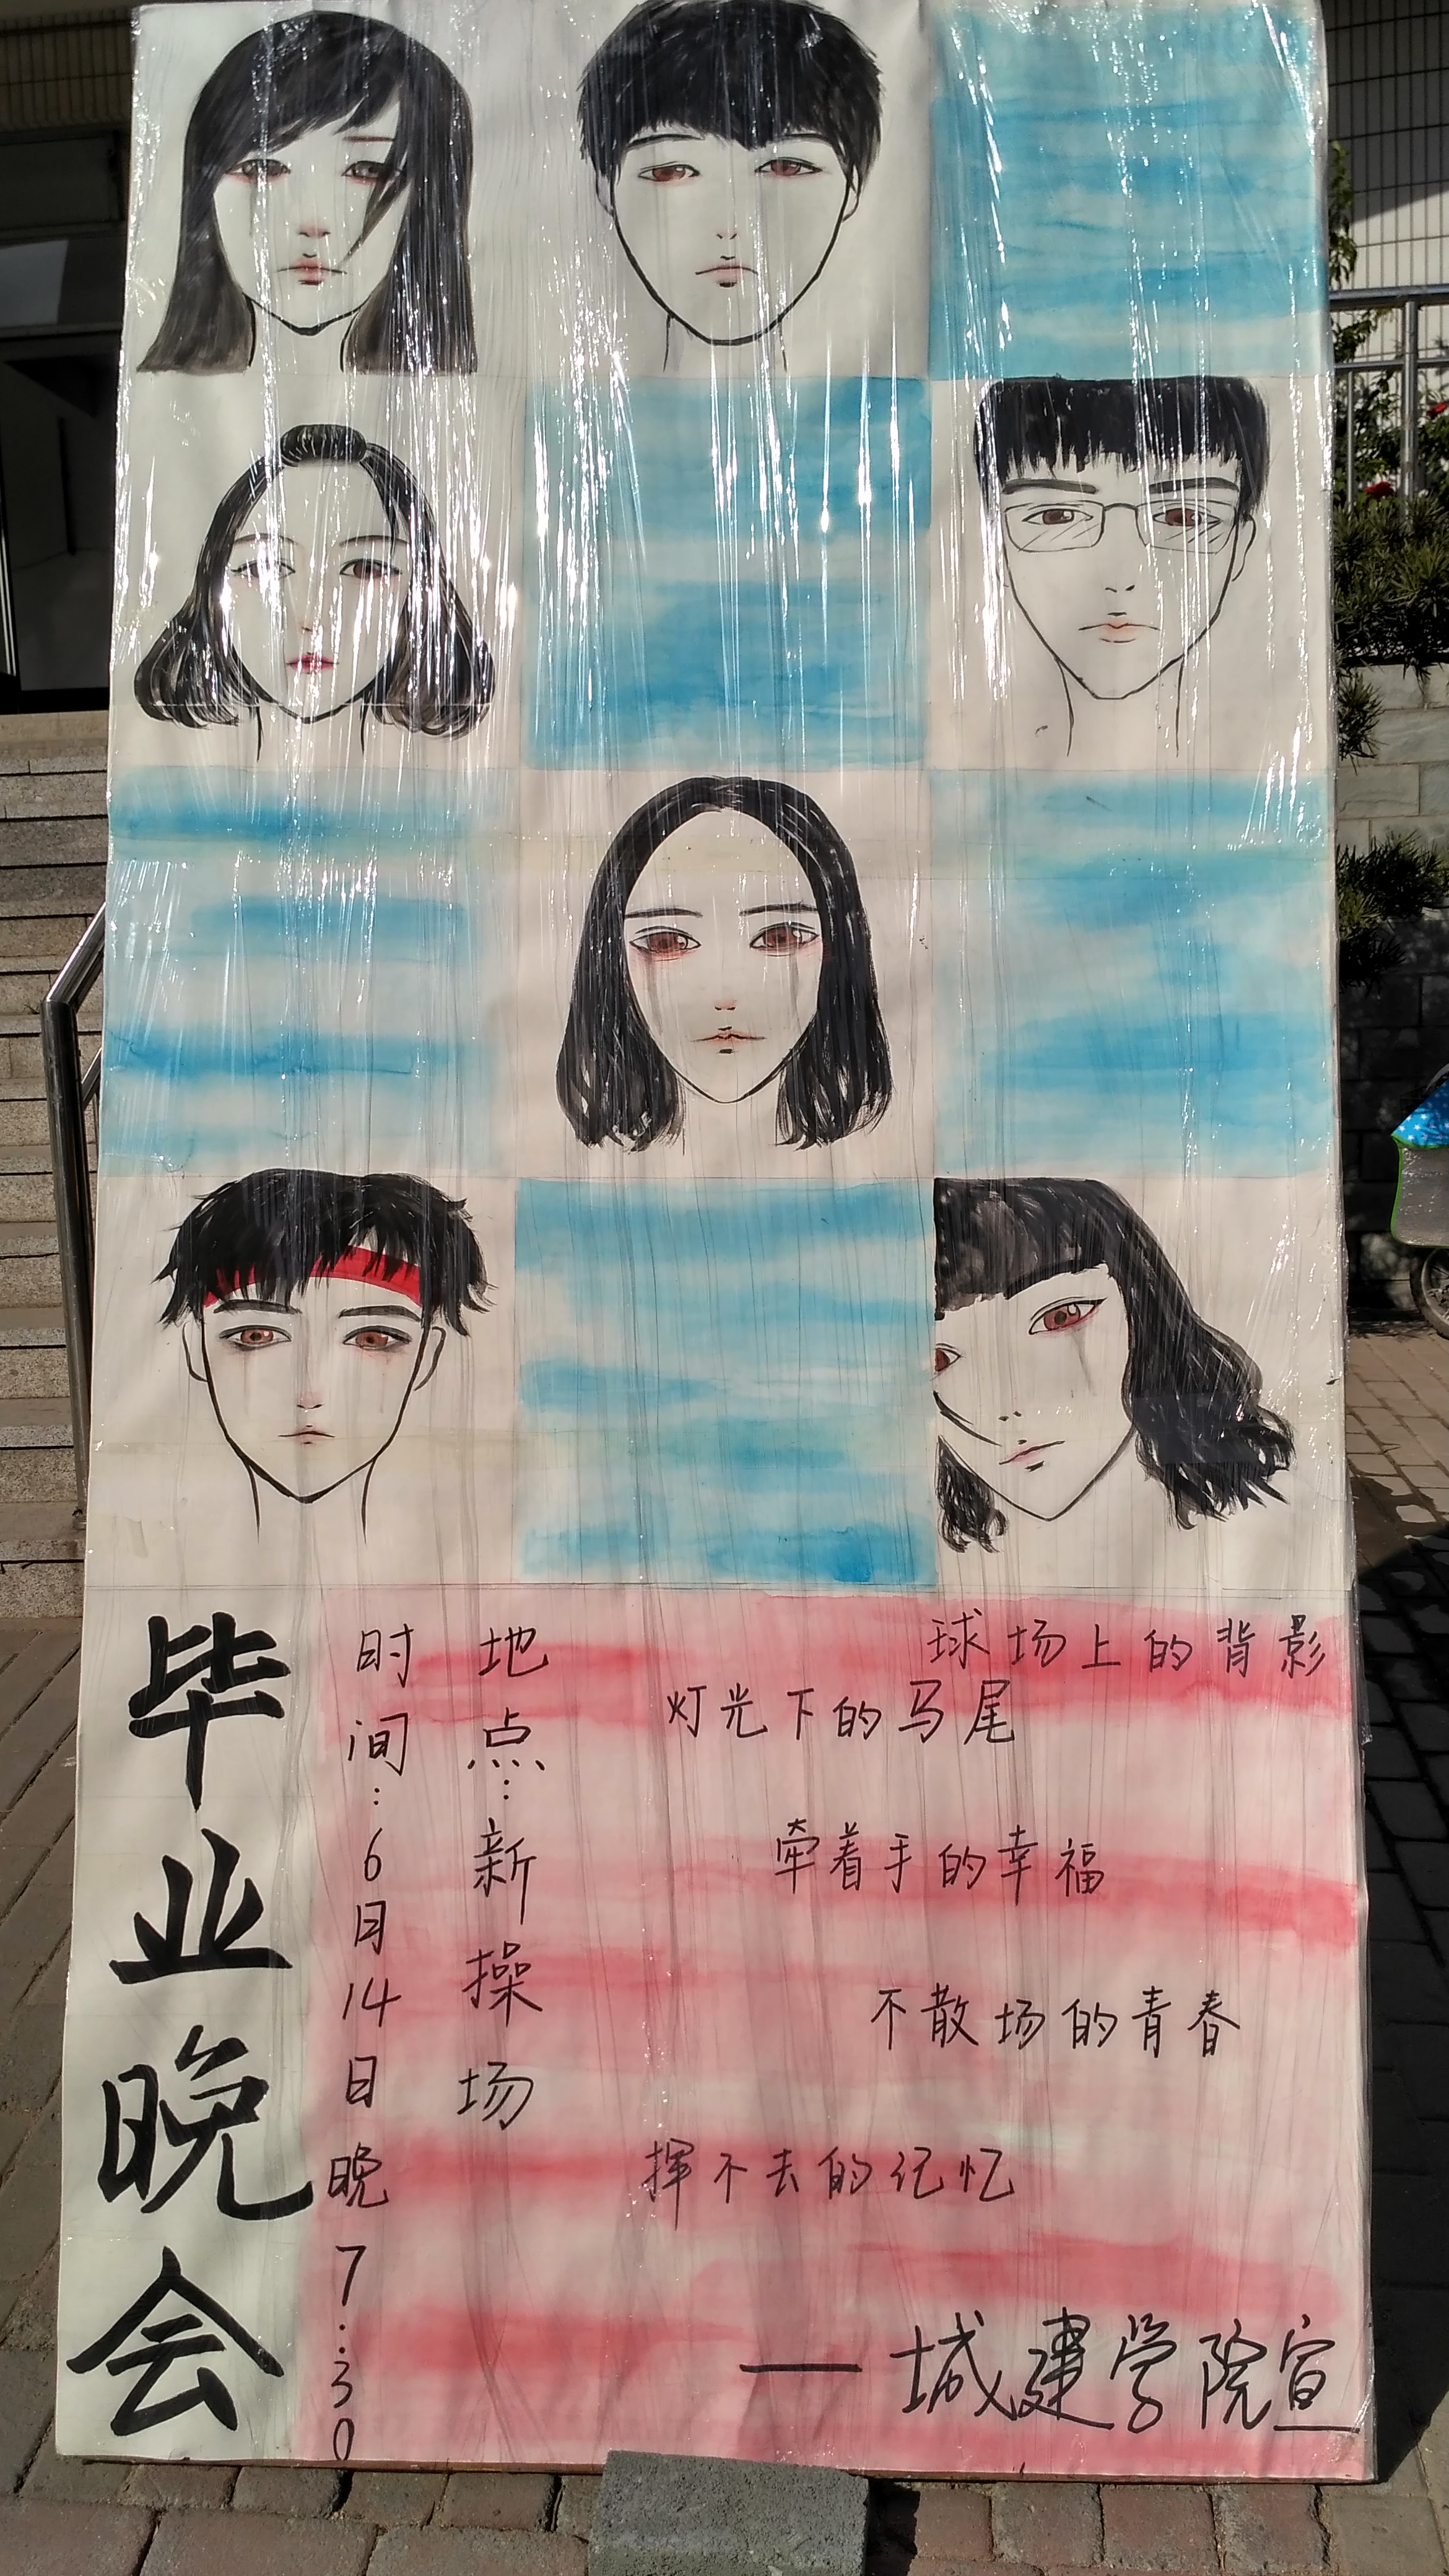 毕业晚会
时间：6月14日晚7:30
地点：新操场
球场上的背影
灯光下的马尾
牵着手的幸福
不散场的青春
挥不去的记忆
——城建学院宣